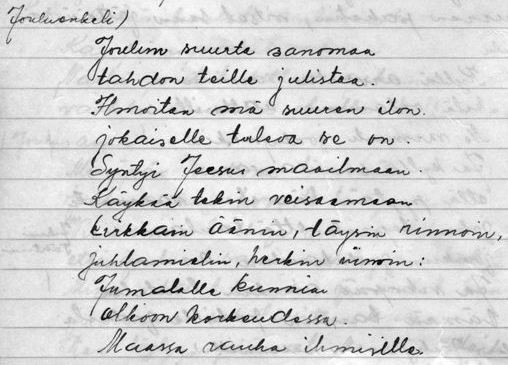 Jouluenkeli)
Joulun suurta sanomaa
tahdon teille julistaa.
Ilmoitan mä suuren ilon.
jokaiselle tuleva se on.
Syntyi Jeesus maailmaan.
Käykää tekin veisaamaan
kirkkain äänin, täysin rinnoin,
juhlamielin, herkin vinoin:
Jumalalle kunnia
olkoon korkeudessa.
Maassa rauha ihmisille.